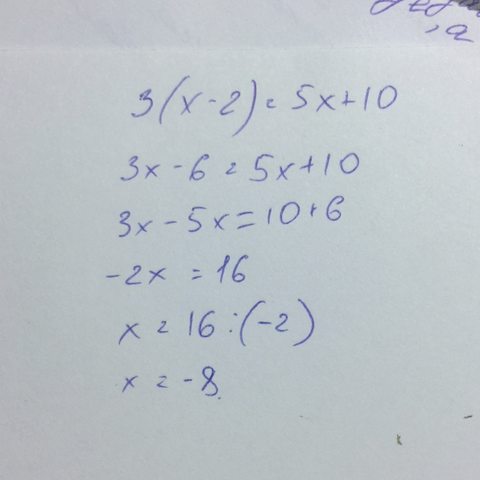 3(x-2)=5x+10
3x-6=5x+10
3x-5x=10+6
-2x=16
x=16:(-2)
x=-8.